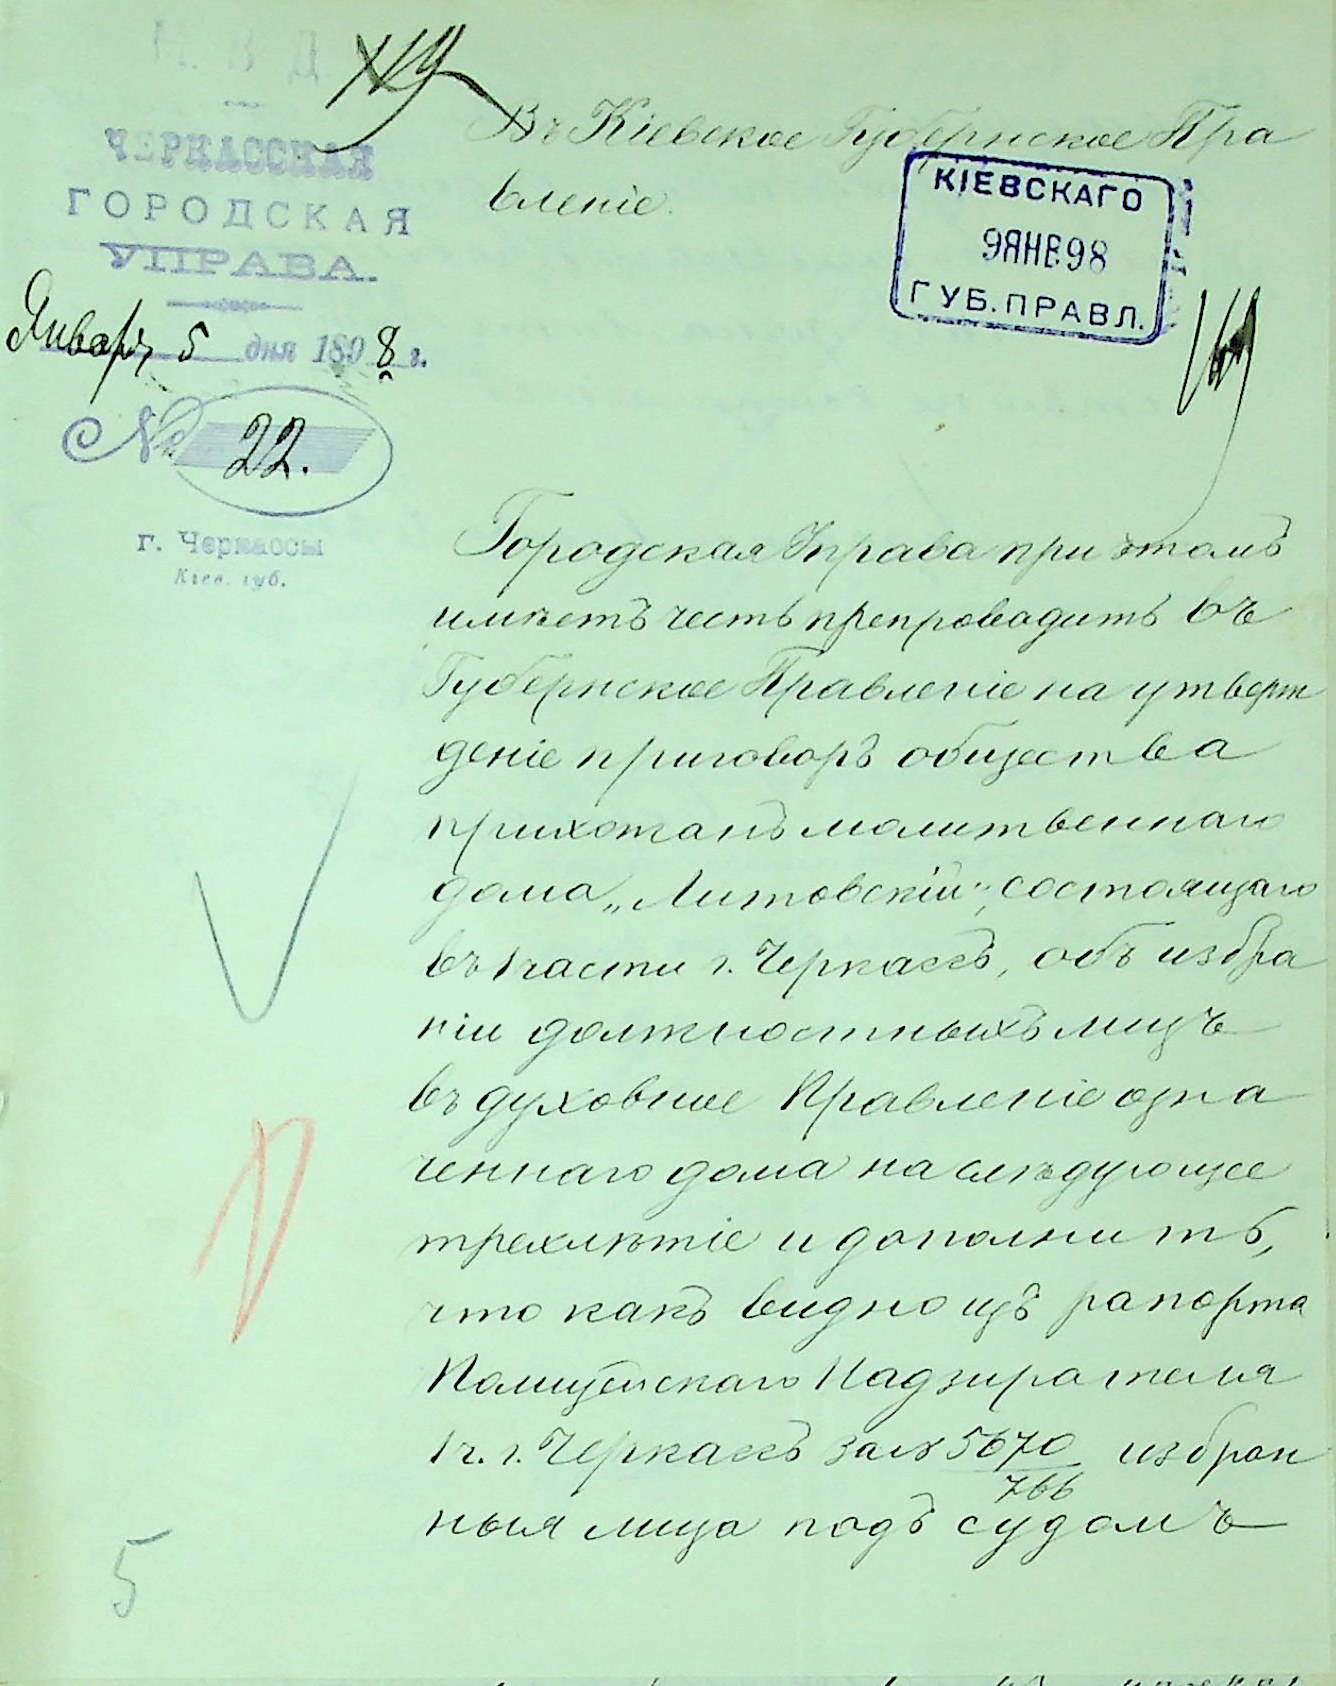 М. В. Д.
ЧЕРКАССКАЯ
ГОРОДСКАЯ
УПРАВА.
Января 5 дня 1898 г.
№ 22.
г. Черкассы
Кіев. губ.
Въ Кіевское Губернское Пра
вленіе.
КІЕВСКАГО
9 ЯНВ. 98
ГУБ. ПРАВЛ.
Городская Управа при этомъ
имѣетъ честь препроводить въ
Губернское Правленіе на утверж
деніе приговоръ общества
прихожанъ молитвеннаго
дома „Литовскій“, состоящаго
въ 1 части г. Черкассъ, объ избра
ніи должностныхъ лицъ
въ духовное Правленіе озна
ченнаго дома на слѣдующее
трехлѣтіе и дополнить,
что какъ видно изъ рапорта
Полицейскаго Надзирателя
1 ч. г. Черкассъ за № 5670 избран
766
ныя лица подъ судомъ
5